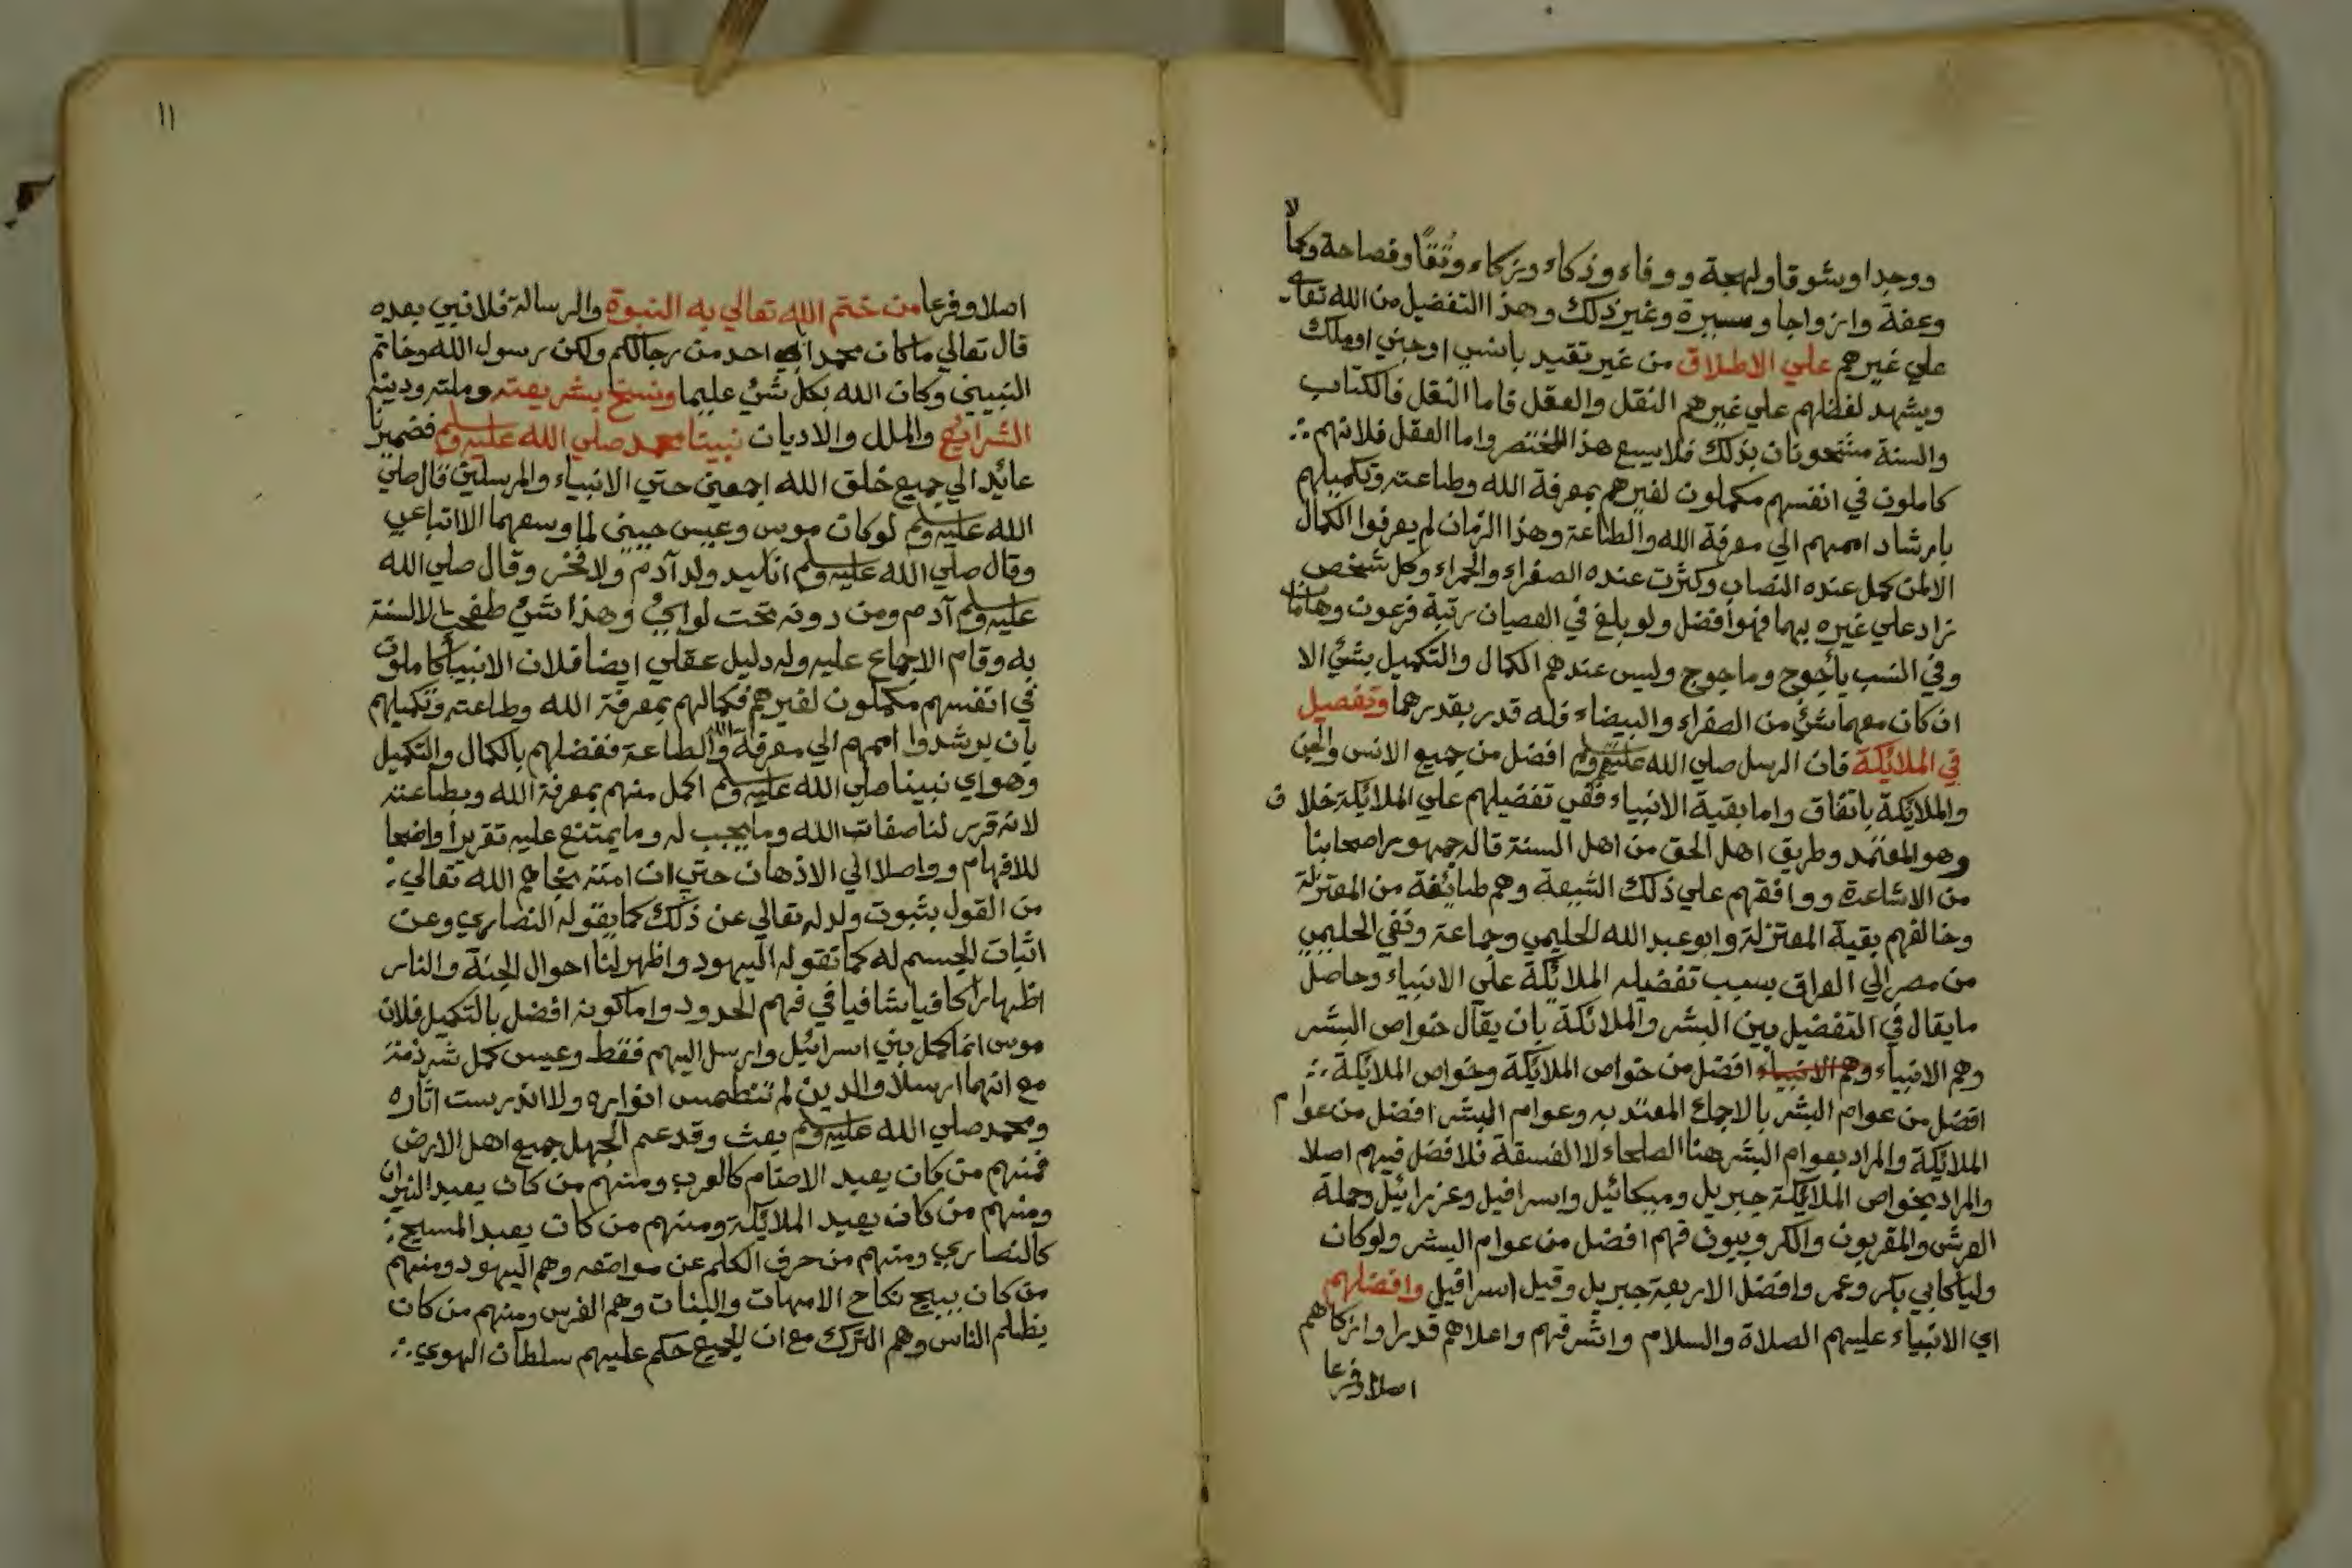 ووجدا وشوقا ولهجة ووفاء وذكاء وزكاء وتقا وفصاحة وكمالا
وعفة وازواجا وسيرة وغير ذلك وهذا التفضيل من الله تعالى
علي غيرهم علي الاطلاق من غير تقيد بانسي اوجني اوملك
ويشهد لفضلهم علي غيرهم النقل والعقل فاما النقل فالكتاب
والسنة مشحونان بذلك فلا يسع هذا المختصر واما العقل فلانهم
كاملون في انفسهم مكملون لغيرهم بمعرفة الله وطاعته وتكميلهم
بارشاد اممهم الي معرفة الله والطاعة وهذا الزمان لم يعرفوا الكمال
الا لمن كمل عنده النصاب وكثرت عنده الصفراء والحمراء وكل شخص
زاد علي غيره بهما فهو افضل ولو بلغ في العصيان رتبة فرعون وهامان
وفي النسب يأجوج وماجوج وليس عندهم الكمال والتكميل بشئ الا
ان كان معهما شئ من الصفراء والبيضاء فله قدر بقدرهما وتفصيل
في الملائكة فان الرسل صلي الله عليهم وسلم افضل من جميع الانس والجن
والملائكة باتفاق واما بقية الانبياء ففي تفضيلهم علي الملائكة خلاف
وهو المعتمد وطريق اهل الحق من اهل السنة قاله جمهور اصحابنا
من الاشاعرة ووافقهم علي ذلك الشيعة وهم طبائفة من المعتزلة
وخالفهم بقية المعتزلة وابوعبد الله الحليمي وجماعة ونفي الحليمي
من مصر الي العراق بسبب تفضيله الملائكة علي الانبياء وحاصل
مايقال في التفضيل بين البشر والملائكة بان يقال خواص البشر
وهم الانبياء وهم الانبياء افضل من خواص الملائكة وخواص الملائكة
افضل من عوام البشر بالاجماع المعتد به وعوام البشر افضل من عوام
الملائكة والمراد بعوام البشر هنا الصلحاء لا الفسقة فلا فضل فيهم اصلا
والمراد بخواص الملائكة جبريل وميكائيل واسرافيل وعزرائيل وحملة
العرش والمقربون والكروبيون فهم افضل من عوام البشر ولوكان
وليا كابي بكر وعمر وافضل الاربعة جبريل وقيل اسرافيل وافضلهم
اي الانبياء عليهم الصلاة والسلام واشرفهم واعلاهم قدرا وازكاهم
اصلا وفرعا
١١
اصلا وفرعا من ختم الله تعالي به النبوة والرسالة فلا نبي بعده
قال تعالي ماكان محمد ابا احد من رجالكم ولكن رسول الله وخاتم
النبيين وكان الله بكل شئ عليما ونسخ بشريعته وملته ودينه
الشرايع والملل والاديان نبينا محمد صلي الله عليه وسلم فضميرنا
عائد الي جميع خلق الله اجمعين حتي الانبياء والمرسلين قال صلي
الله عليه وسلم لوكان موسي وعيسي حيين لما وسعهما الا اتباعي
وقال صلي الله عليه وسلم انا سيد ولد آدم ولا فخر وقال صلي الله
عليه وسلم آدم ومن دونه تحت لوايئ وهذا شئ طفحت الالسنة
به وقام الاجماع عليه وله دليل عقلي ايضا فلان الانبياء كاملون
في انفسهم مكملون لغيرهم فكمالهم بمعرفة الله وطاعته وتكميلهم
بان يرشدوا اممهم الي معرفة الله والطاعة ففضلهم بالكمال والتكميل
وهو اي نبينا صلي الله عليه وسلم اكمل منهم بمعرفة الله وبطاعته
لانه قرر لنا صفات الله ومايجب له ومايمتنع عليه تقريرا واضحا
للافهام وواصلا الي الاذهان حتي ان امته نجاهم الله تعالي
من القول بثبوت ولد له تعالي عن ذلك كما يقوله النصاري وعن
اثبات الجسم له كما تقوله اليهود واظهر لنا احوال الجنة والنار
اظهارا كافيا شافيا في فهم الحدود واما كونه افضل بالتكميل فلان
موسي انما كمل بني اسرائيل وارسل اليهم فقط وعيسي كمل شرذمة
مع انهما ارسلا والدين لم تنطمس انواره ولا اندرست اثاره
ومحمد صلي الله عليه وسلم بعث وقد عم الجهل جميع اهل الارض
فمنهم من كان يعبد الاصنام كالعرب ومنهم من كان يعبد النيران
ومنهم من كان يعبد الملائكة ومنهم من كان يعبد المسيح
كالنصاري ومنهم من حرف الكلم عن مواضعه وهم اليهود ومنهم
من كان يبيح نكاح الامهات والبنات وهم الفرس ومنهم من كان
يظلم الناس وهم الترك مع ان الجميع حكم عليهم سلطان الهوي